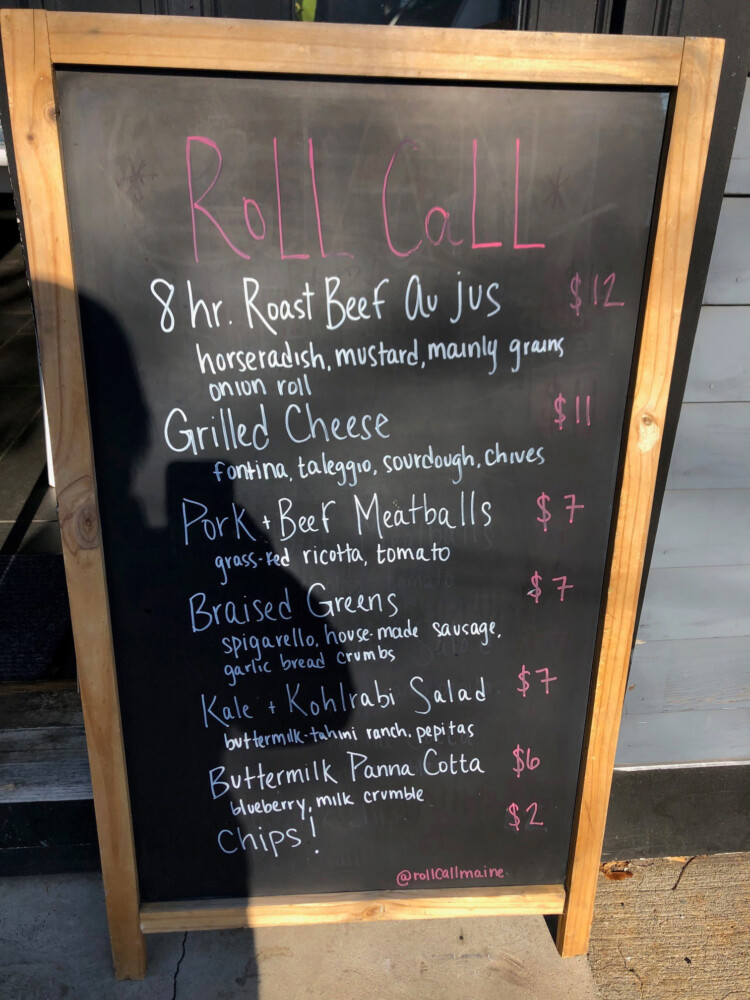 RoLL CaLL
8 hr. Roast Beef Au jus $12
horseradish, mustard, mainly grains
onion roll
Grilled Cheese $11
fontina, taleggio, sourdough, chives
Pork + Beef Meatballs $7
grass-fed ricotta, tomato
Braised Greens $7
spigarello, house-made sausage,
garlic bread crumbs
Kale + Kohlrabi Salad $7
buttermilk-tahini ranch, pepitas
Buttermilk Panna Cotta $6
blueberry, milk crumble
Chips! $2
@rollcallmaine